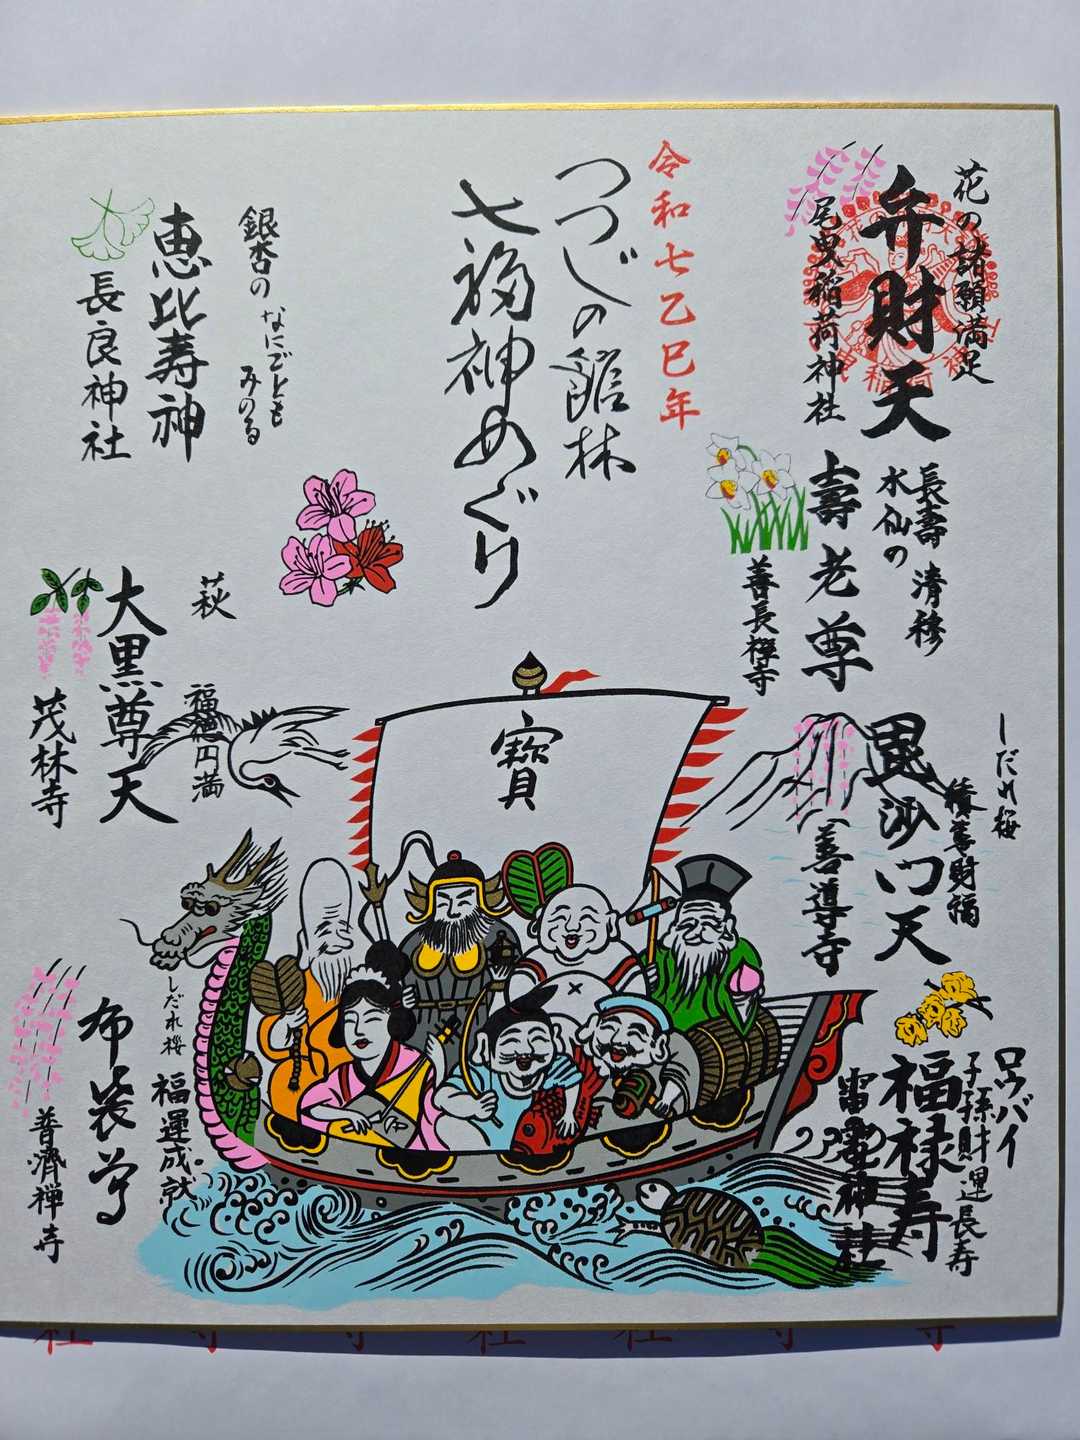 令和七乙巳年
つつじの館林
七福神めぐり
花の諸願満足
弁財天
尾曳稲荷神社
長壽 清穆
水仙の
壽老尊
善長禅寺
しだれ桜
毘沙門天
善導寺
ロウバイ
子孫財運長寿
福禄寿
雷電神社
寳
銀杏の
なにごとも
みのる
恵比寿神
長良神社
萩
福徳円満
大黒尊天
茂林寺
しだれ桜
福運成就
布袋尊
普濟禅寺